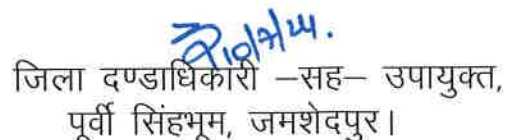 10/7/24.
जिला दण्डाधिकारी –सह– उपायुक्त,
पूर्वी सिंहभूम, जमशेदपुर।